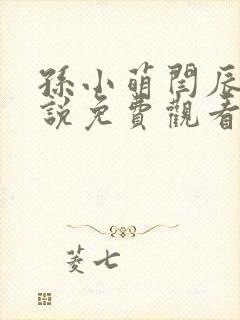 孫小萌閆辰
說免費觀看
菱七